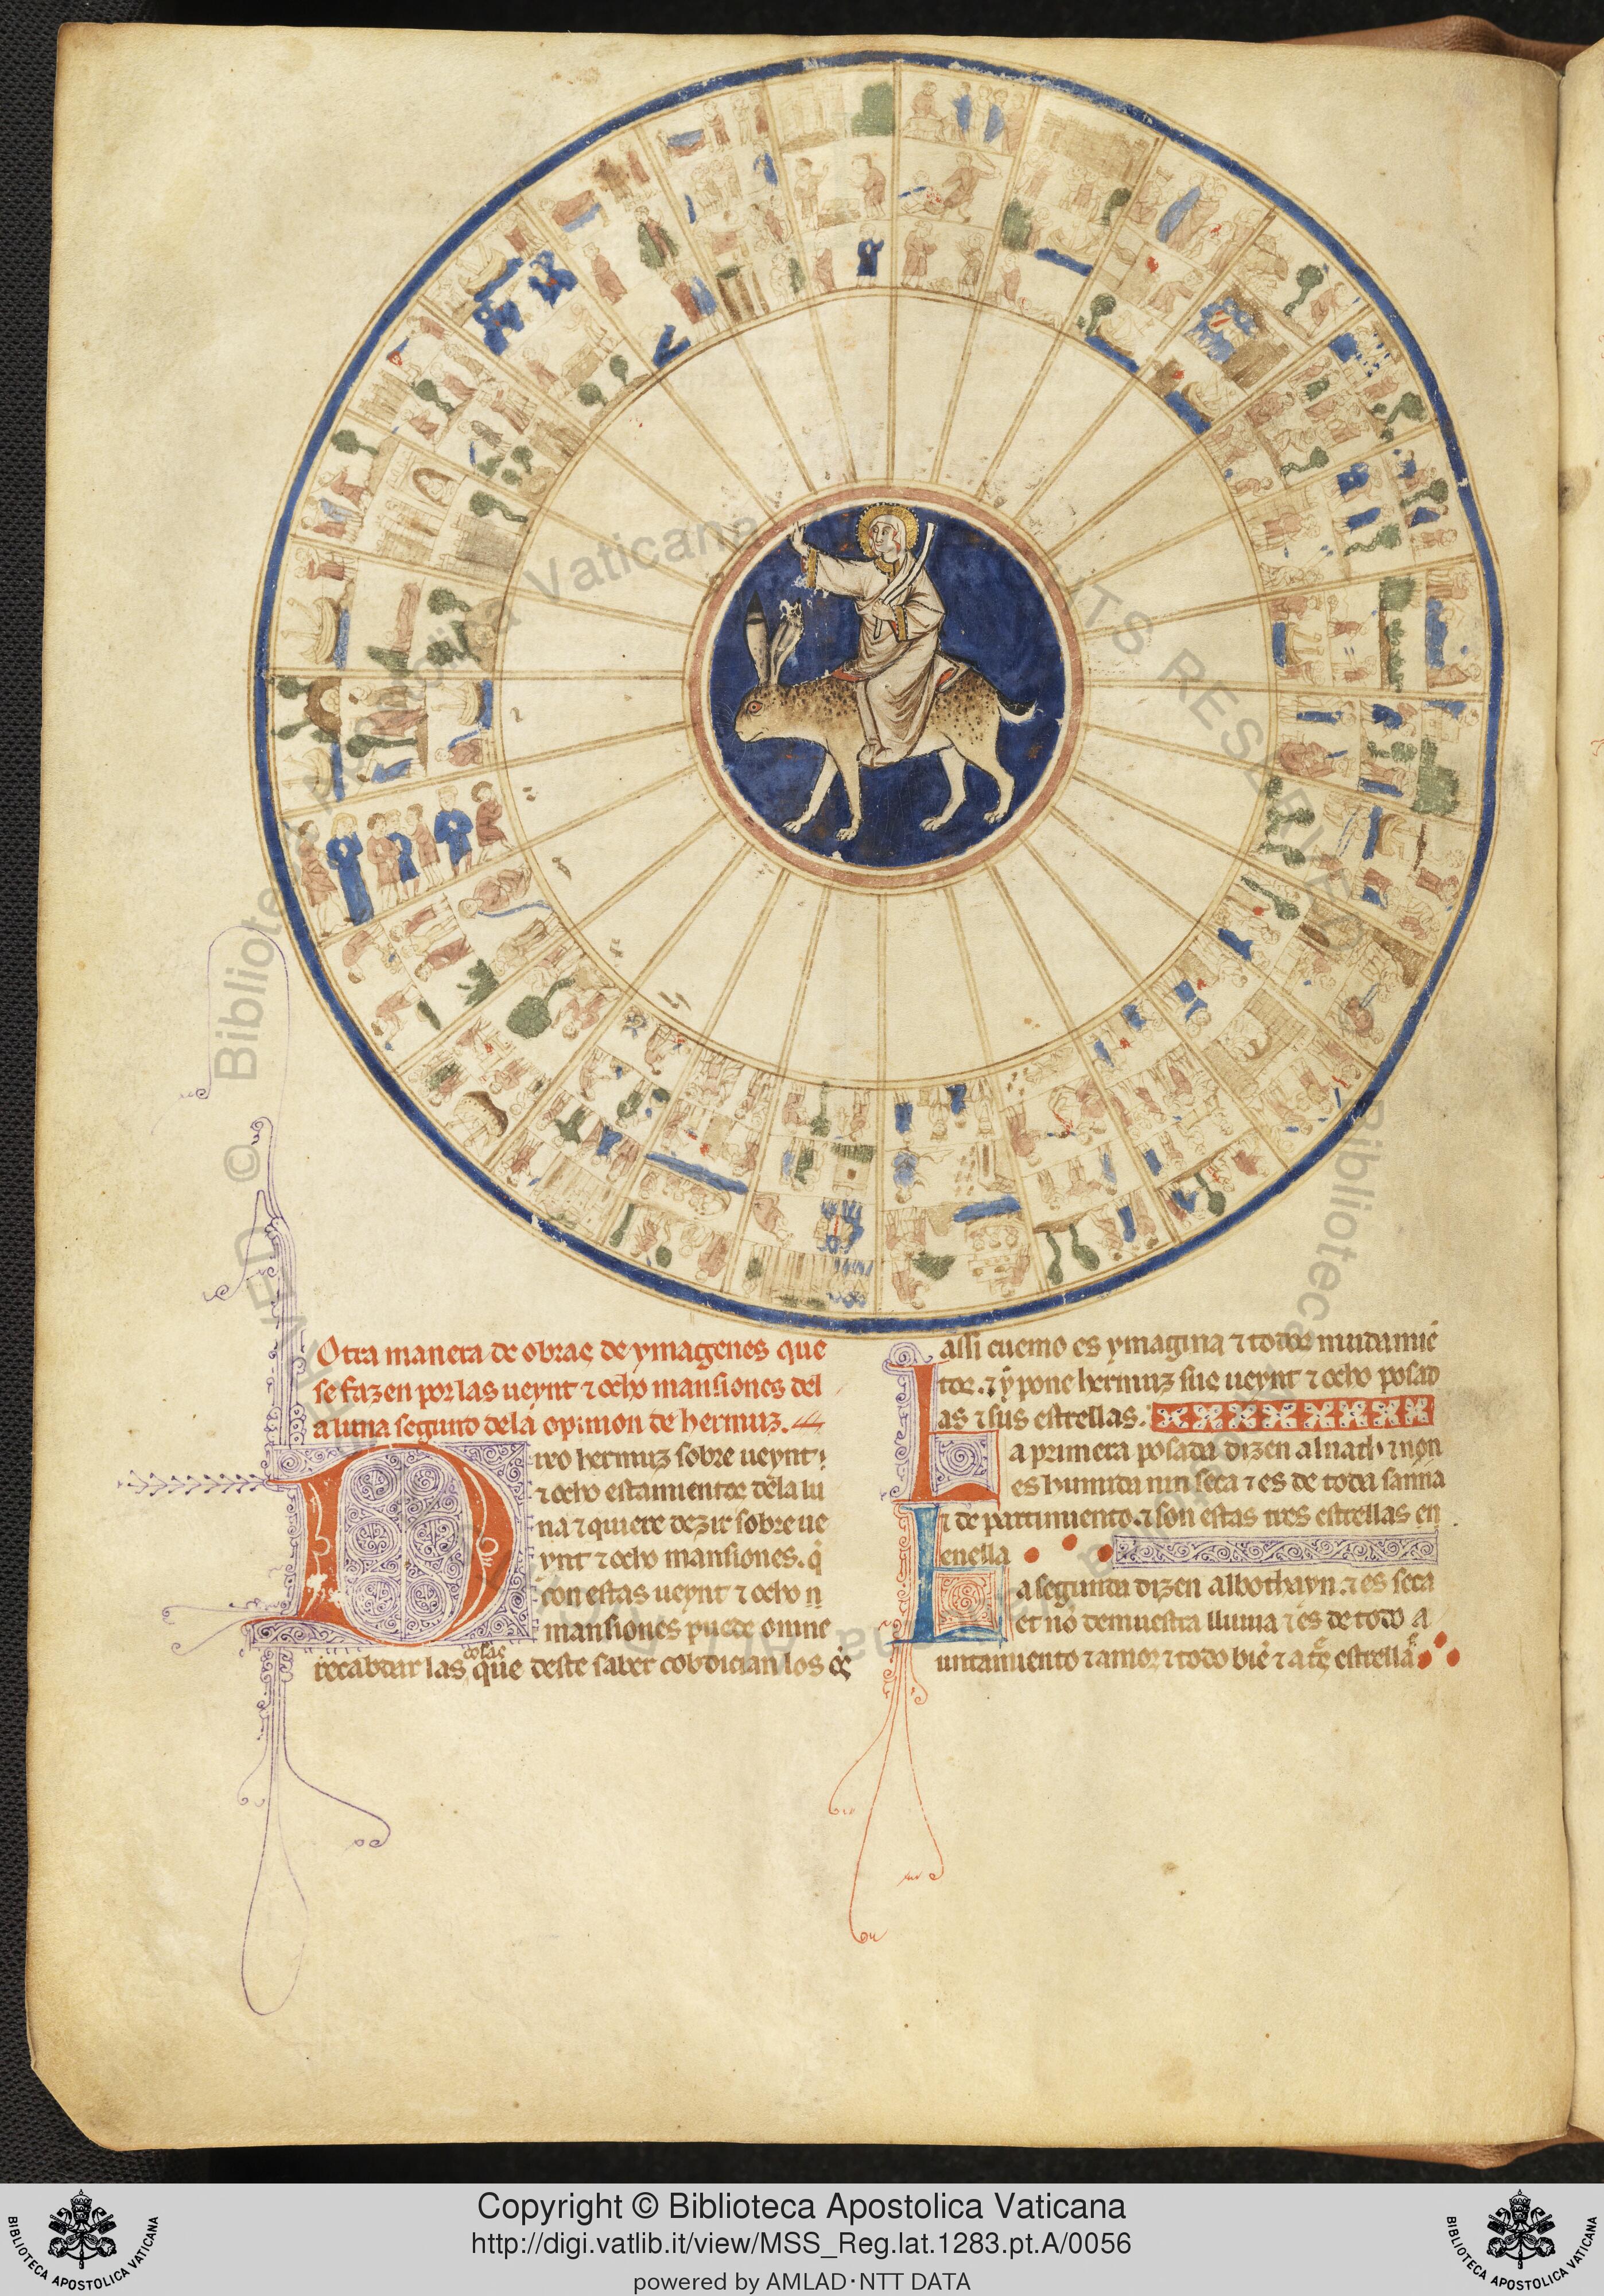 Otra manera de obras de ymagenes que
se fazen por las ueynt ⁊ ocho mansiones del
a luna segund dela opinion de hermuz.
Dixo hermuz sobre ueynt
⁊ ocho estamientos dela lu
na ⁊ quiere dezir sobre ue
ynt ⁊ ocho mansiones. q̄
con estas ueynt ⁊ ocho
mansiones puede omne
cosas
recabdar las que deste saber cobdician los
assi cuemo es ymagina ⁊ todos mudamiē
tos. ⁊ y pone hermuz sus ueynt ⁊ ocho posad
as ⁊ sus estrellas.
La primera posada dizen alnath ⁊ non
es humida nin seca ⁊ es de toda sanna
⁊ de partimiento. ⁊ son estas tres estrellas en
enella
La segunda dizen albothayn. ⁊ es seca
et no demuestra lluuia ⁊ es de todo a
untamiento ⁊ amor ⁊ todo biē ⁊ estrella
© Biblioteca Apostolica Vaticana
Copyright © Biblioteca Apostolica Vaticana
http://digi.vatlib.it/view/MSS_Reg.lat.1283.pt.A/0056
powered by AMLAD·NTT DATA
BIBLIOTECA APOSTOLICA VATICANA
BIBLIOTECA APOSTOLICA VATICANA